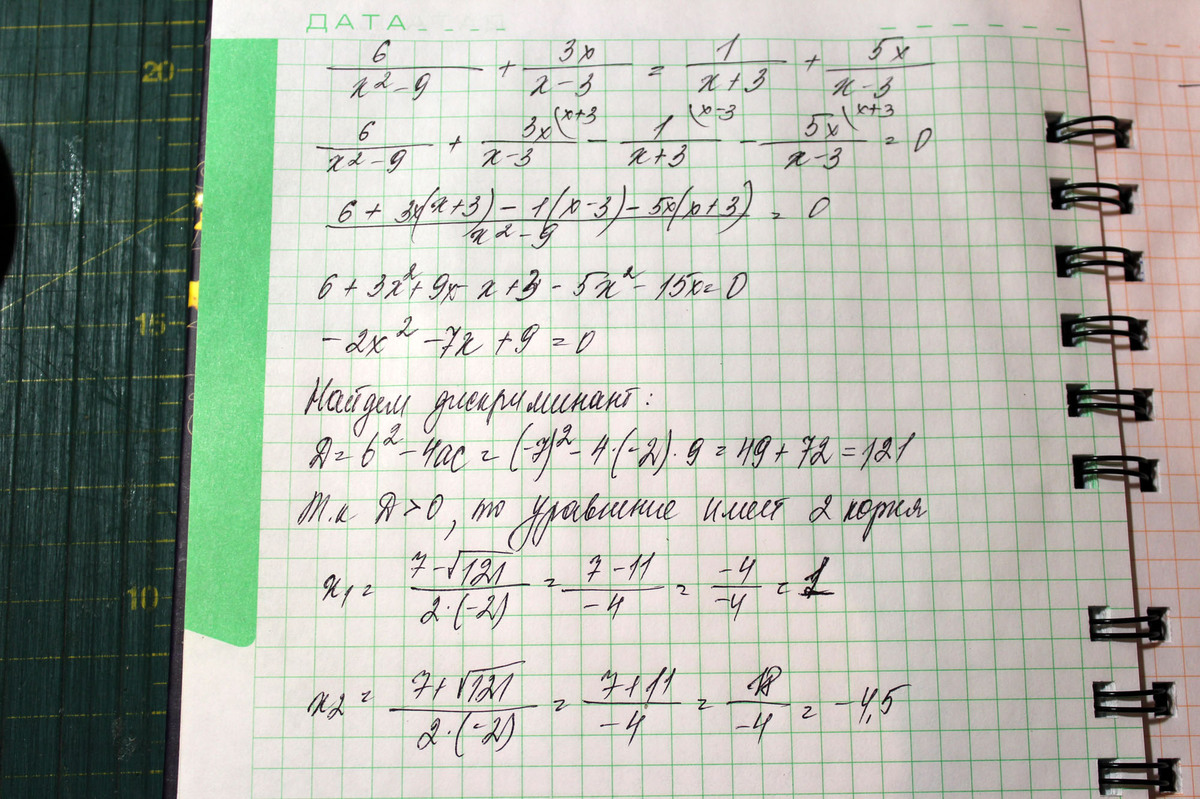 ДАТА
20
6/(x²-9) + 3x/(x-3) = 1/(x+3) + 5x/(x-3)
6/(x²-9) + 3x(x+3/(x-3) - 1(x-3/(x+3) - 5x(x+3/(x-3) = 0
(6 + 3x(x+3) - 1(x-3) - 5x(x+3))/(x²-9) = 0
6 + 3x² + 9x - x + 3 - 5x² - 15x = 0
15
-2x² - 7x + 9 = 0
Найдем дискриминант:
Д = b² - 4ac = (-7)² - 4·(-2)·9 = 49 + 72 = 121
Т.к Д > 0, то уравнение имеет 2 корня
10
x₁ = (7-√121)/(2·(-2)) = (7-11)/(-4) = -4/-4 = 1
x₂ = (7+√121)/(2·(-2)) = (7+11)/(-4) = 18/-4 = -4,5